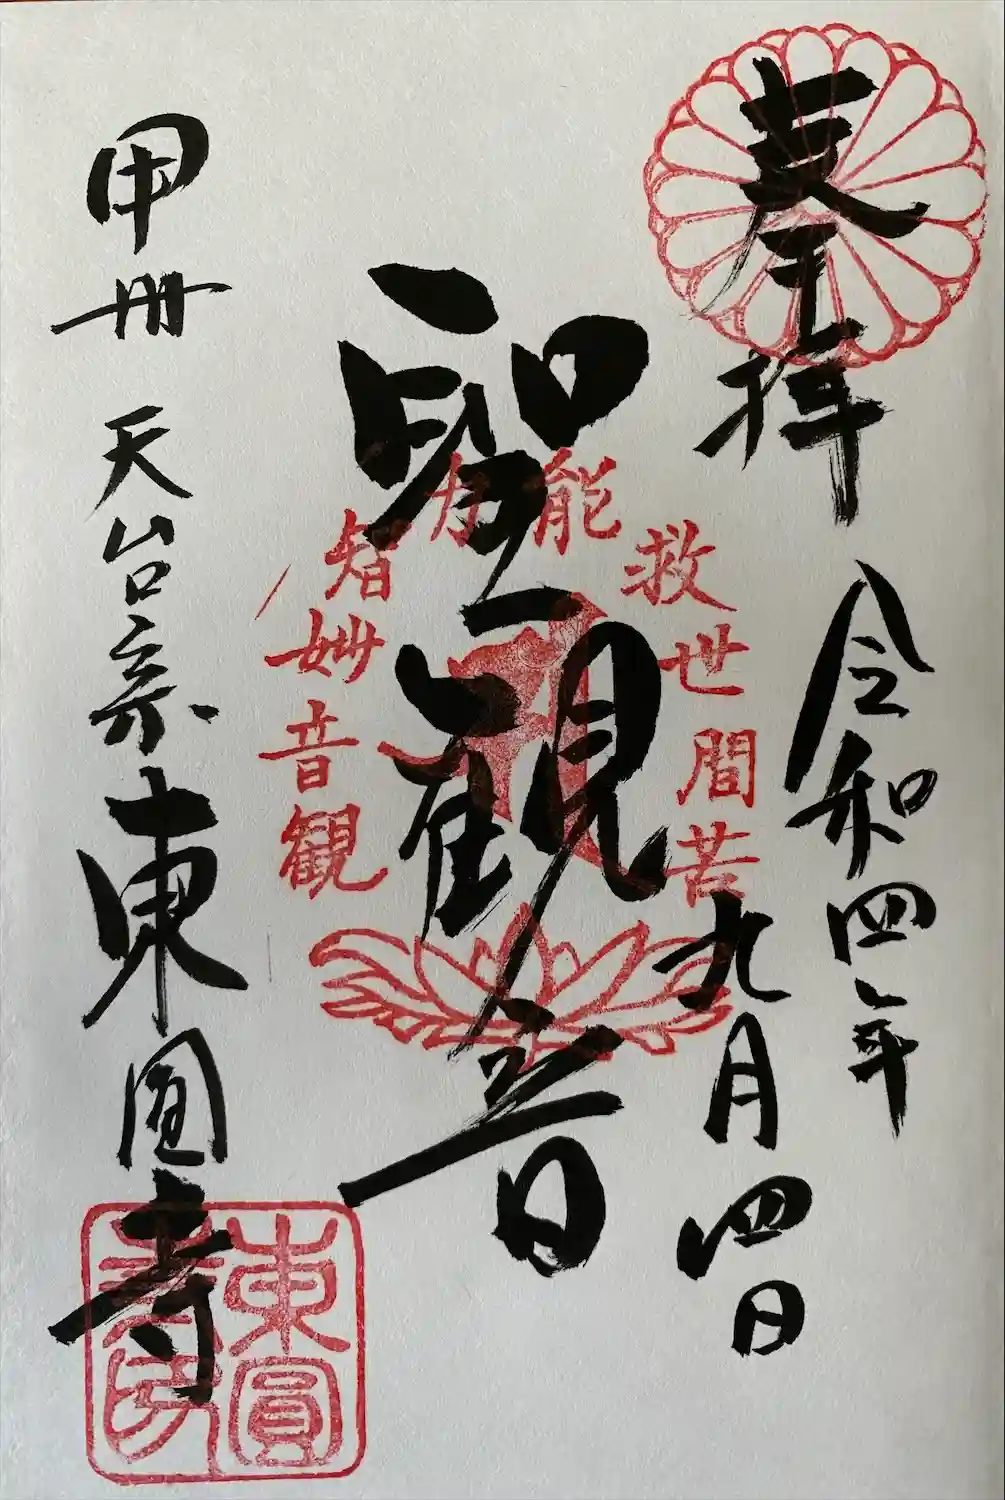 奉拝
令和四年
九月四日
聖観音
観音妙智力能救世間苦
甲州 天台宗 東圓寺
東圓
寺印